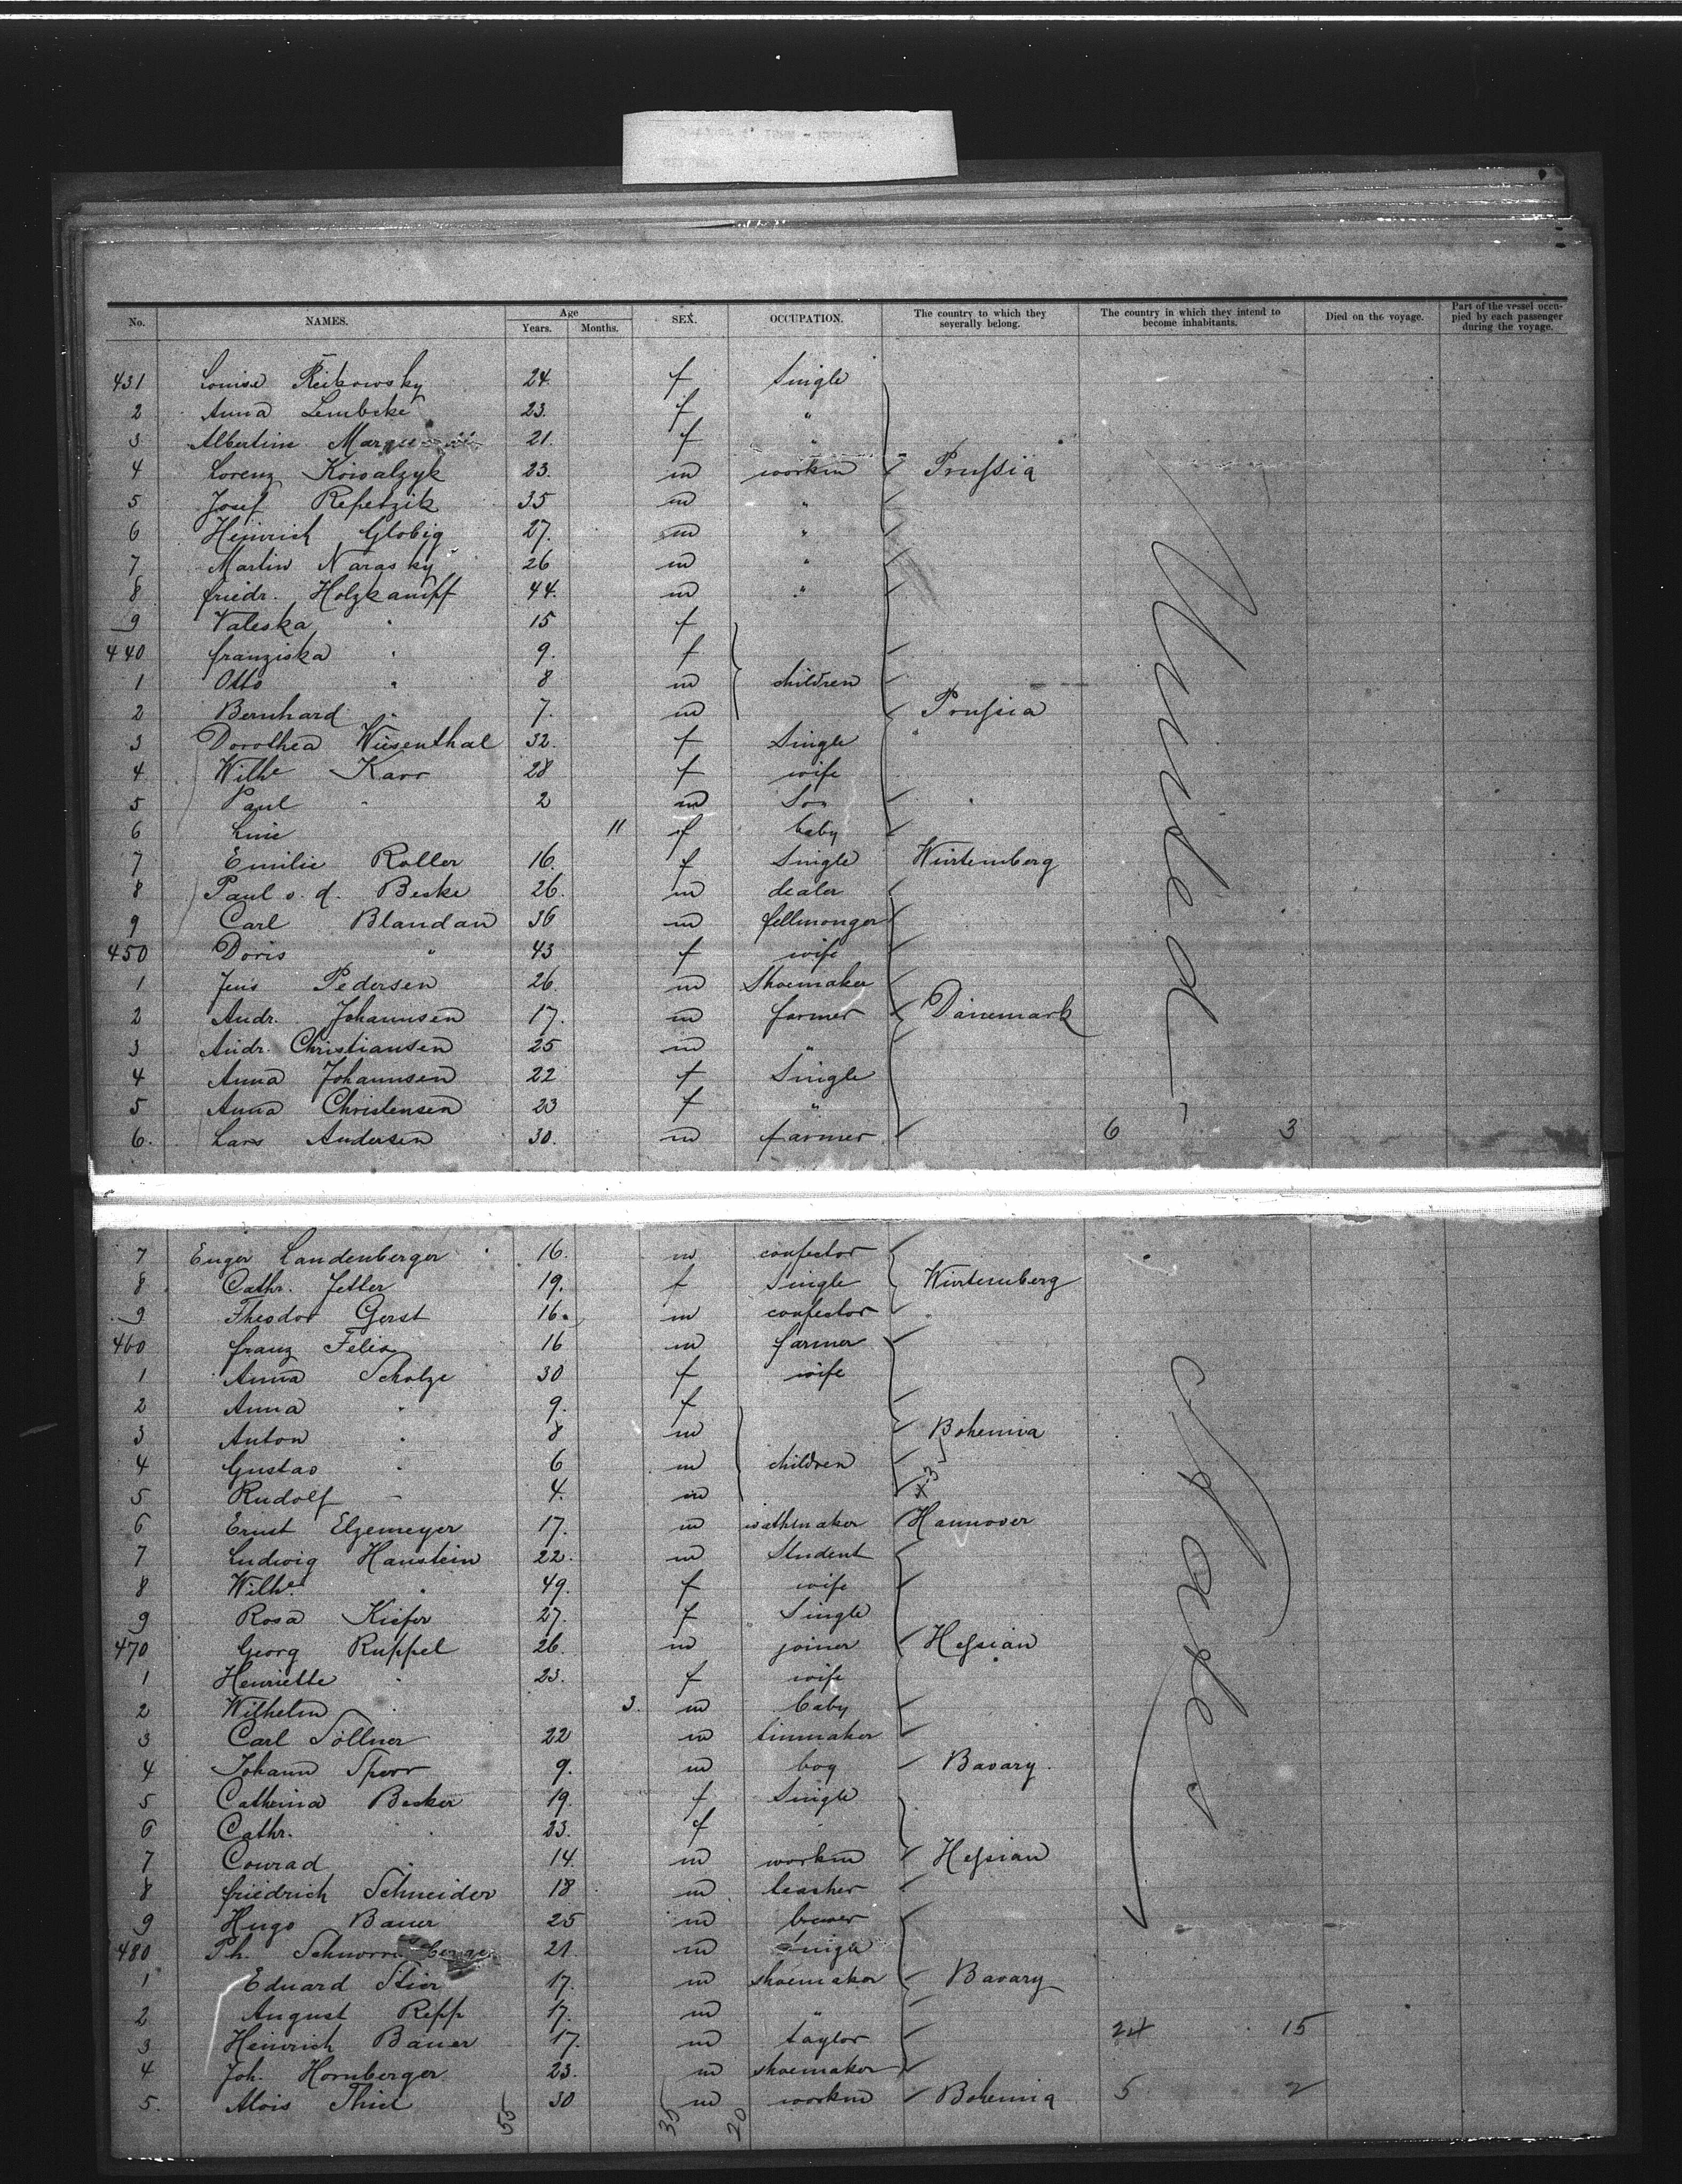 No. NAMES. Age Years. Months. SEX. OCCUPATION. The country to which they severally belong. The country in which they intend to become inhabitants. Died on the voyage. Part of the vessel occupied by each passenger during the voyage.
431 Louise Reikowsky 24. f Single
2 Anna Lembcke 23. f "
3 Albertine 21. f "
4 Lorenz Kowalzyk 23. m workm Prussia
5 Josef Repetzik 35 m "
6 Heinrich Globig 27. m "
7 Martin Narasky 26 m "
8 Friedr. Holzkampf 44. m "
9 Valeska " 15 f
440 Franziska " 9. f
1 Otto " 8 m children
2 Bernhard " 7. m Prussia
3 Dorothea Wiesenthal 32. f Single "
4 Wilhe Karr 28 f wife
5 Paul " 2 m Son
6 Line 11 f baby
7 Emilie Roller 16. f Single Würtemberg
8 Paul v. d. Beske 26. m dealer
9 Carl Blandan 36 m fellmonger
450 Doris " 43 f wife
1 Jens Pedersen 26. m Shoemaker
2 Andr. Johannsen 17. m farmer Dänemark
3 Andr. Christiansen 25 m "
4 Anna Johannsen 22 f Single
5 Anna Christensen 23 f "
6. Lars Andersen 30. m farmer 6 3
United
7 Euger Landenberger 16. m confector
8 Cathr. Jetter 19. f Single Würtemberg
9 Theodor Gerst 16. m confector
460 Franz Felix 16 m farmer
1 Anna Scholze 30 f wife
2 Anna " 9. f
3 Anton " 8 m Bohemia
4 Gustav " 6 m children
5 Rudolf " 4. m
6 Ernst Elzemeyer 17. m wathmaker Hannover
7 Ludwig Hanstein 22. m Student
8 Wilhe " 49. f wife
9 Rosa Kiefer 27. f Single
470 Georg Ruppel 26. m joiner Hessian
1 Henriette " 23. f wife
2 Wilhelm 3. m baby
3 Carl Söllner 22 m tinmaker
4 Johann Sporr 9. m boy Bavary.
5 Catherina Becker 19. f Single
6 Cathr. " 23. f "
7 Conrad " 14. m workm Hessian
8 Friedrich Schneider 18 m teasher
9 Hugo Bauer 25 m brewer
480 Ph. 21. m Single
1 Eduard Stier 17. m shoemaker Bavary
2 August Repp 17. m "
3 Heinrich Bauer 17. m taylor 24 15
4 Joh. Hornberger 23. m shoemaker
5. Alois Thiel 30 m workm Bohemia 5 2
States
55 35 20